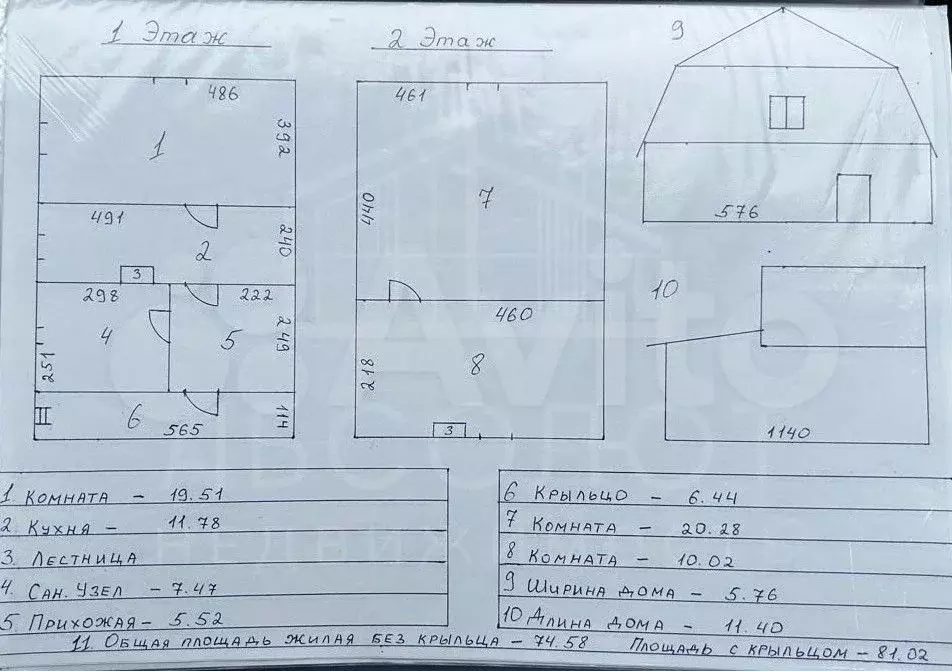 1 Этаж
2 Этаж
9
486
392
1
491
2
240
3
298
222
4
5
249
251
6
565
114
461
440
7
460
218
8
3
576
10
1140
1 Комната – 19.51
2. Кухня – 11.78
3. Лестница
4. Сан. Узел – 7.47
5. Прихожая – 5.52
6 Крыльцо – 6.44
7 Комната – 20.28
8 Комната – 10.02
9 Ширина дома – 5.76
10 Длина дома – 11.40
11. Общая площадь жилая без крыльца – 74.58 Площадь с крыльцом – 81.02
Avito